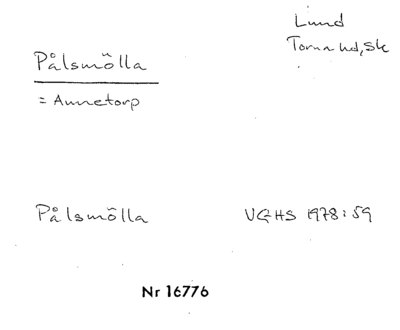 Lund
Torna hd, Sk
Pålsmölla
= Annetorp
Pålsmölla VGHS 1978:59
Nr 16776